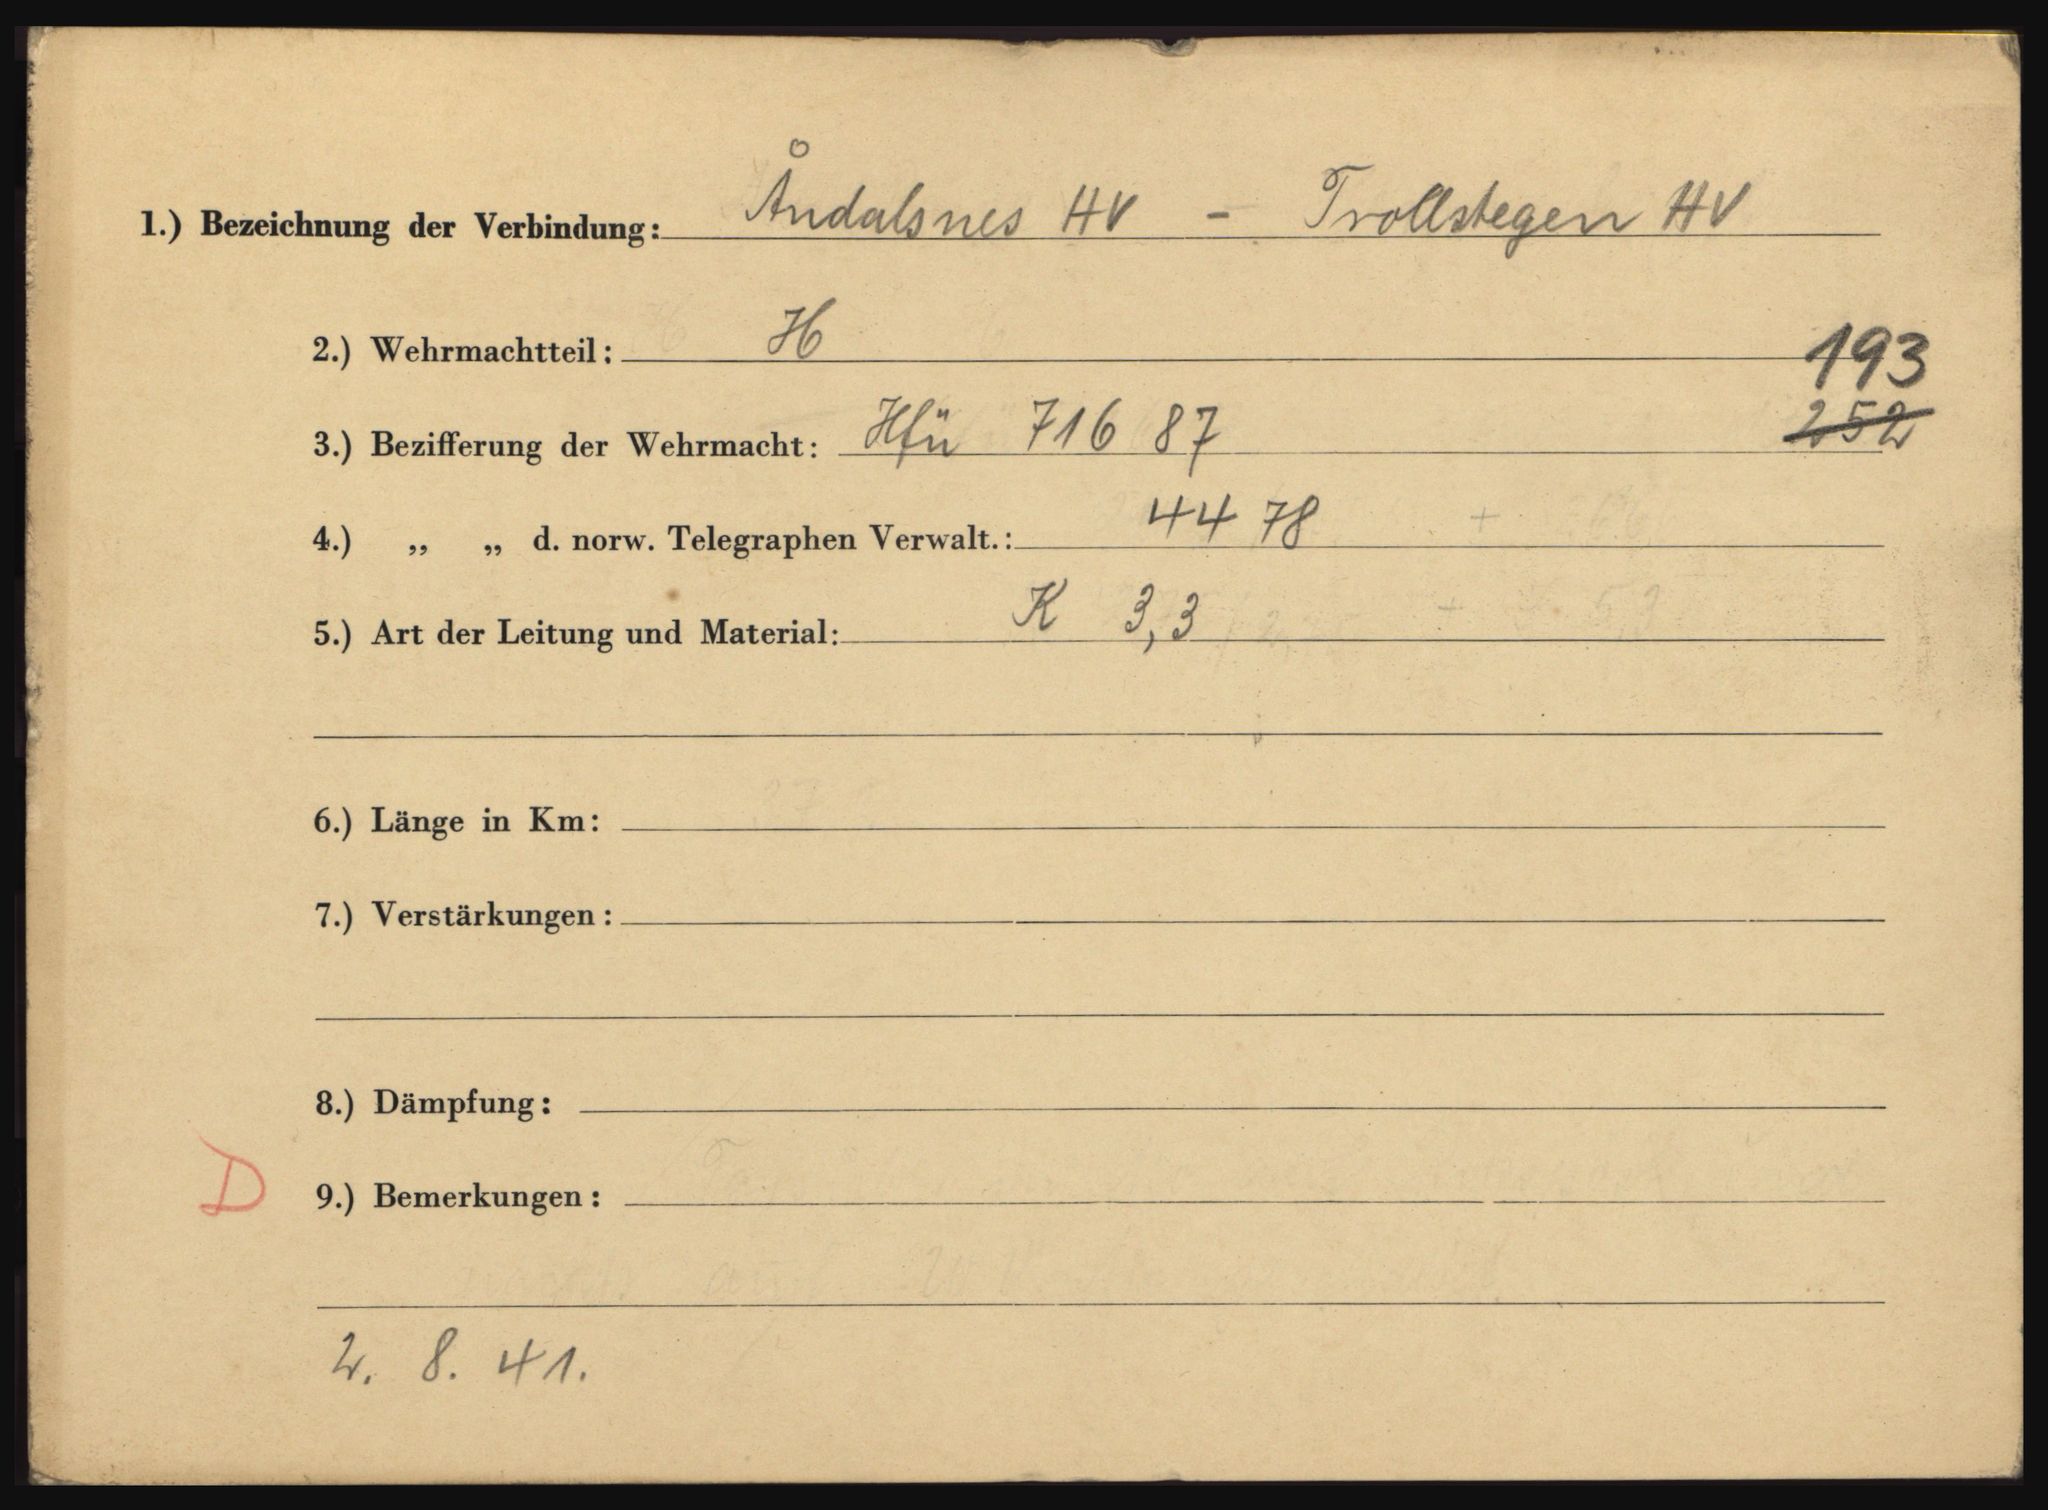 1.) Bezeichnung der Verbindung: Åndalsnes HV - Trollstegen HV
2.) Wehrmachtteil: H
193
3.) Bezifferung der Wehrmacht: Hfü 716 87
252
4.) „ „ d. norw. Telegraphen Verwalt.: 44 78
5.) Art der Leitung und Material: K 3,3
6.) Länge in Km:
7.) Verstärkungen:
8.) Dämpfung:
D
9.) Bemerkungen:
2. 8. 41.